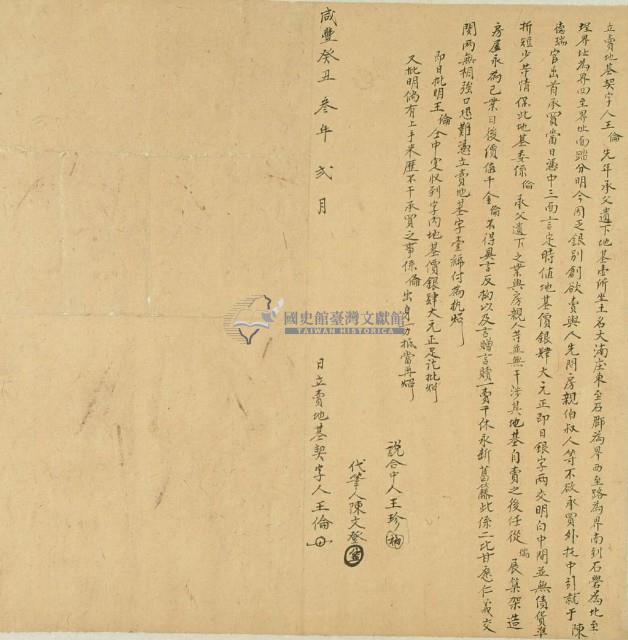 立賣地基契字人王倫先年承父遺下地基壹所坐土名大湳庄東至石鄞為界西至路為界南到石礐為北至
埕界址為界四至界址面踏分明今因乏銀別創欲賣與人先問房親伯叔人等不欲承買外托中引就于陳
德瑞官出首承買當日憑中三面言定時值地基價銀肆大元正即日銀字兩交明白中間並無債貨準
折短少等情保此地基委係倫承父遺下之業與房親人等並無干涉其地基自賣之後任從瑞展集架造
房屋永為己業日後價值千金倫不得異言反拗以及言贈言贖一賣千休永斷葛藤此係二比甘愿仁義交
関両無相強口恐難憑立賣地基字壹紙付為执炤
即日批明王倫仝中定收到字內地基價銀肆大元正足訖批炤
又批明倘有上手来歷不干承買之事係倫出身一力抵當再炤
說合中人王珍
代筆人陳文登
咸豐癸丑叁年弍月
日立賣地基契字人王倫
國史館臺灣文獻館
TAIWAN HISTORICA